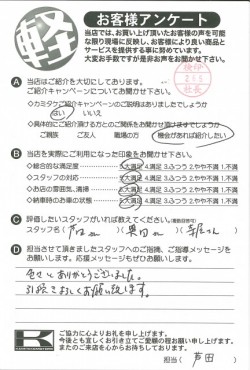 軽
お客様アンケート
当店では、お買い上げ頂いたお客様の声を可能
な限り現場に反映し、お客様により良い商品と
サービスを提供する事に努めています。
大変お手数ですが是非お声をお聞かせ下さい。
A 当店はご紹介を大切にしております。
ご紹介キャンペーンについてお聞かせ下さい
◇カミタケご紹介キャンペーンのご説明はありましたでしょうか
はい いいえ
◇具体的にご紹介頂ける方とのご関係をお聞かせ頂けますでしょうか
ご親族 ご友人 職場の方 機会があれば紹介したい
B 当店を実際にご利用になった印象をお聞かせ下さい。
◇総合的な満足度 5.大満足 4.満足 3.ふつう 2.やや不満 1.不満
◇スタッフの対応 5.大満足 4.満足 3.ふつう 2.やや不満 1.不満
◇お店の雰囲気、清掃 5.大満足 4.満足 3.ふつう 2.やや不満 1.不満
◇納車時のお車の状態 5.大満足 4.満足 3.ふつう 2.やや不満 1.不満
C 評価したいスタッフがいれば教えてください。
スタッフ名( 芦田さん )( 奥田さん )(
D 担当させて頂きましたスタッフへのご指摘、ご指導メッセージを
お願いします。応援メッセージもぜひお願いします。
ありがとうございました。
お願い致します。
K
ご協力に心よりお礼を申し上げます。
今後とも宜しくお引き立てご愛顧の程お願い申し上げます。
またのご来店を心からお待ちしております。
担当( 芦田 )